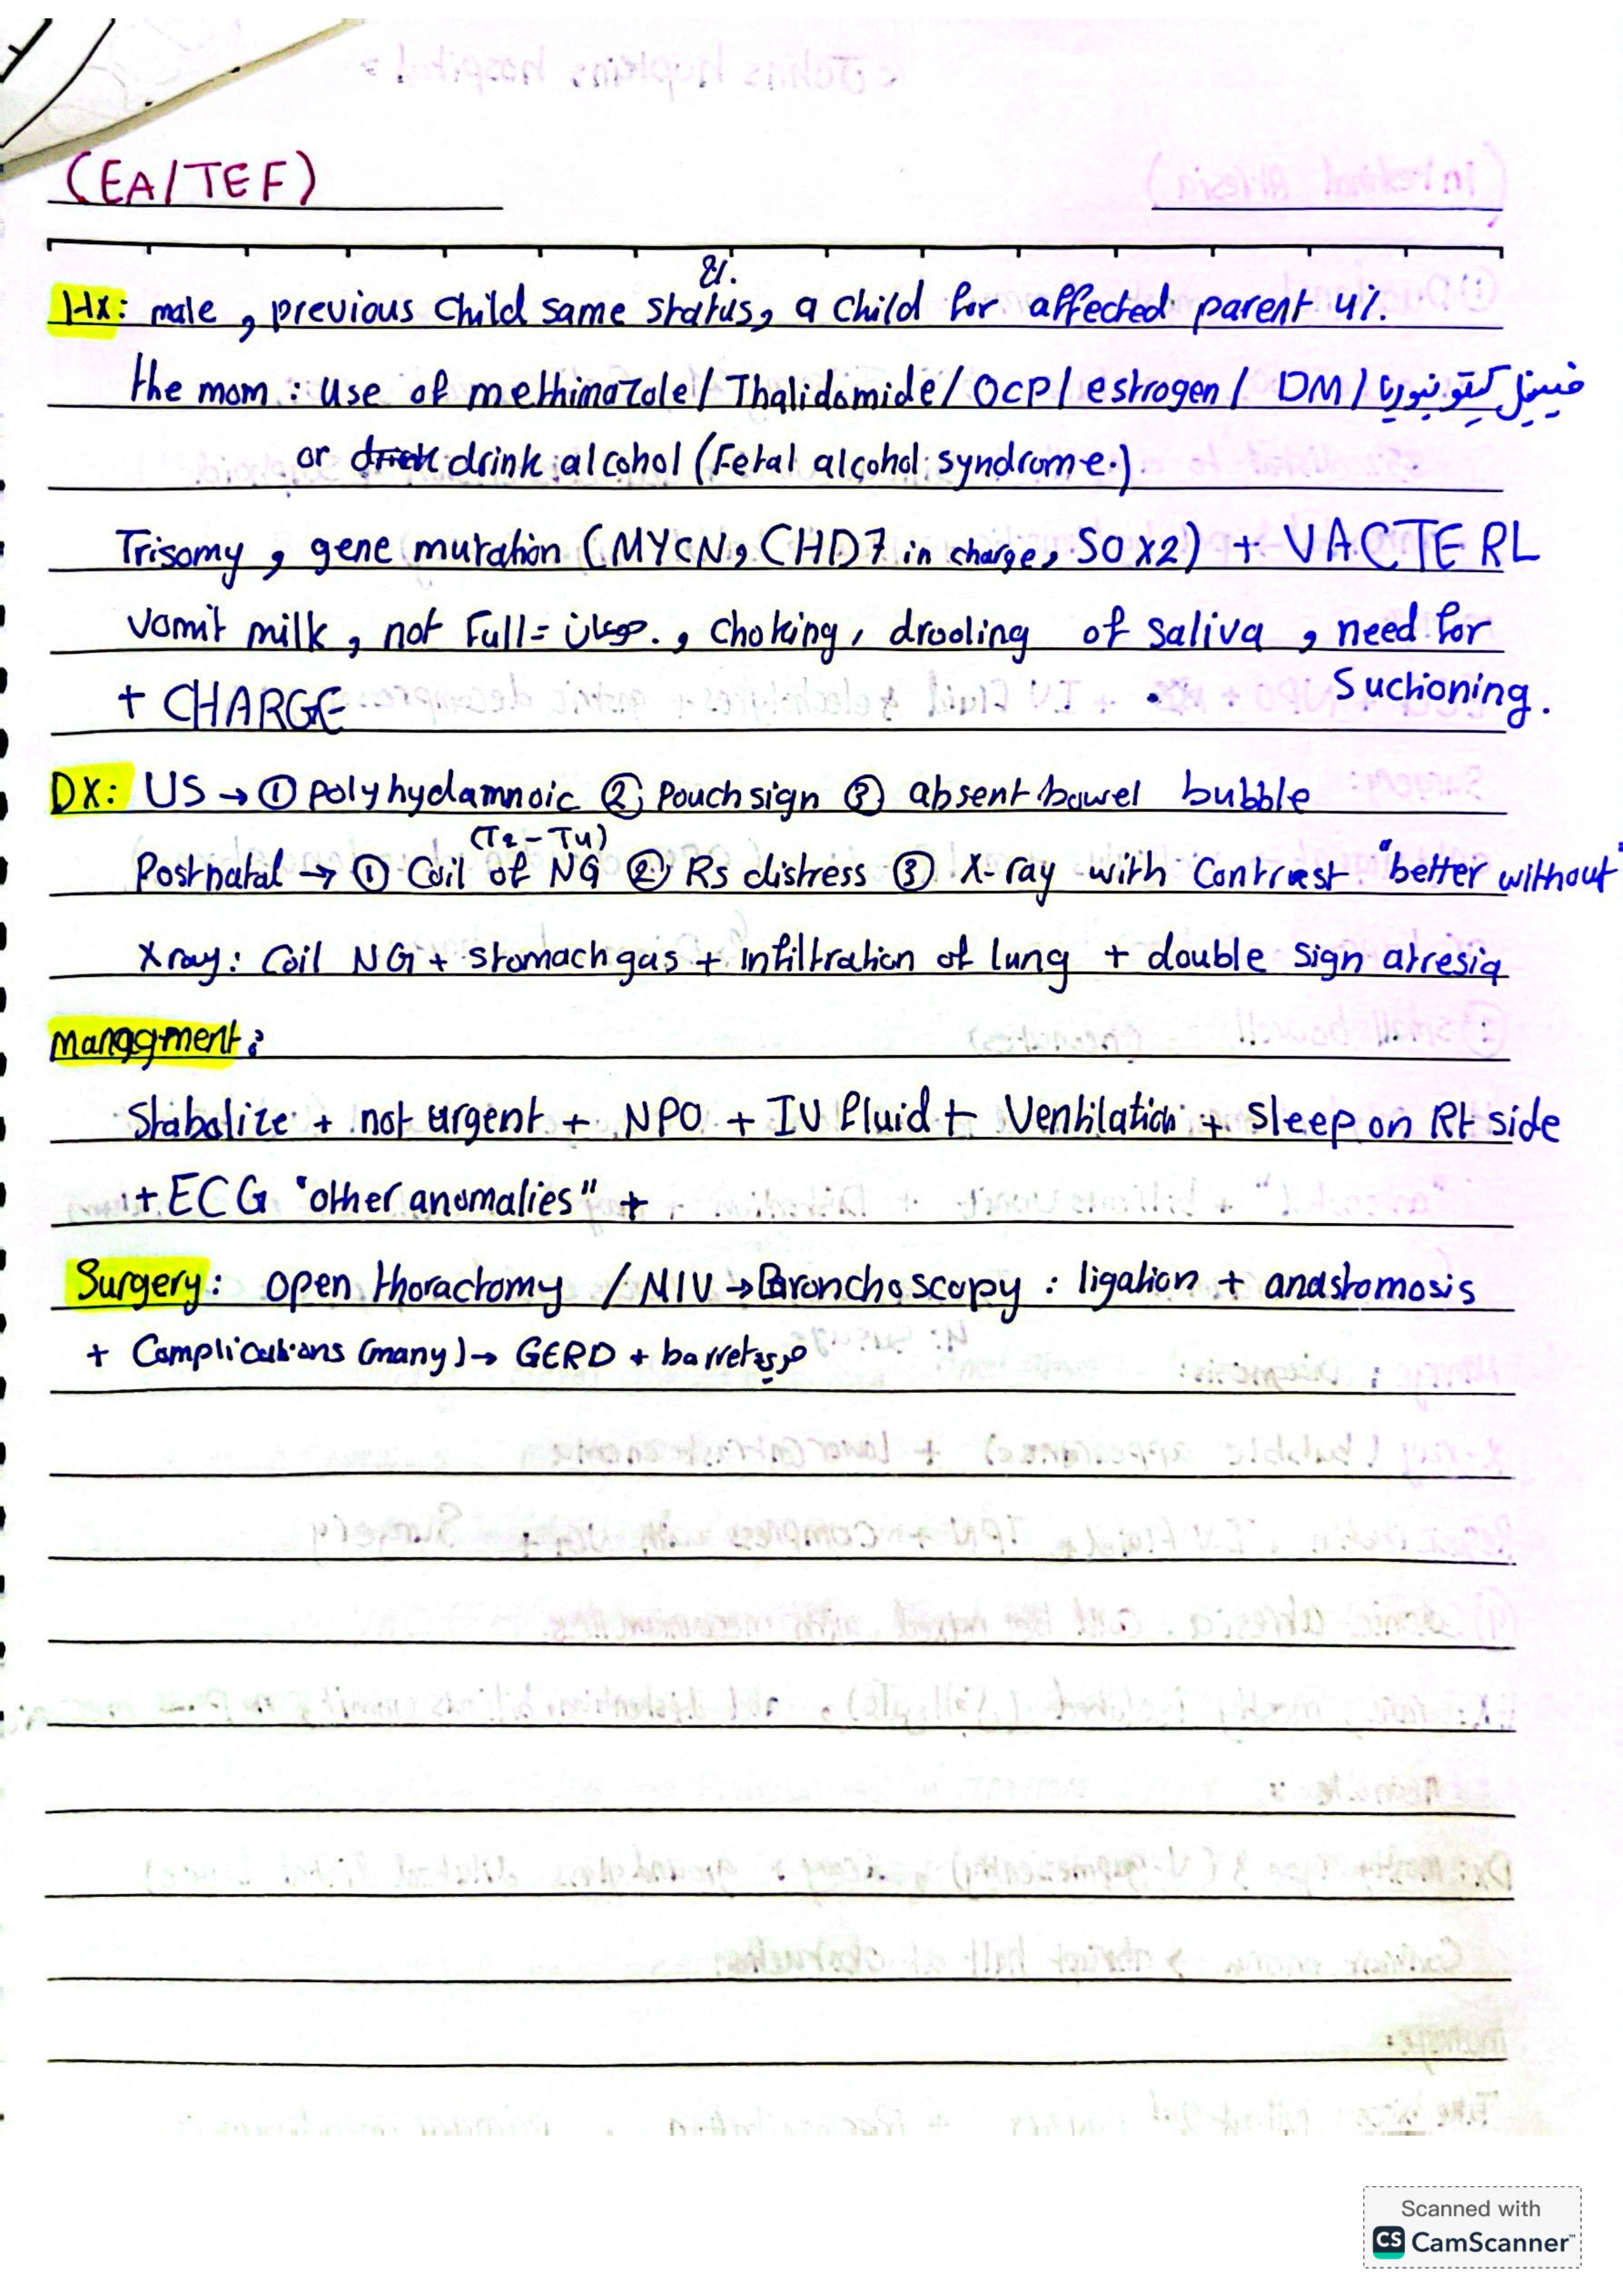 (EA/TEF)
2%.
Hx: male, previous child same status, a child for affected parent 4%.
the mom: Use of methimazole/Thalidomide/OCP/estrogen/DM/فينيل كيتو نيوريا
or drink alcohol (Fetal alcohol syndrome.)
Trisomy, gene mutation (MYCN, CHD7 in charge, SOX2) + VACTERL
Vomit milk, not Full = , choking, drooling of saliva, need for
+ CHARGE Suctioning.
DX: US → ① polyhydamnoic ② Pouch sign ③ absent bowel bubble
(T2-T4)
Postnatal → ① Coil of NG ② Rs distress ③ X-ray with Contrast "better without"
Xray: Coil NG + stomach gas + infiltration of lung + double sign atresia
managment:
Stabolize + not urgent + NPO + IV fluid + Ventilation + sleep on Rt side
+ ECG "other anomalies" +
Surgery: open thoractomy / MIV → Bronchoscopy: ligation + anastomosis
+ Complications (many) → GERD + barret
Scanned with
CS CamScanner